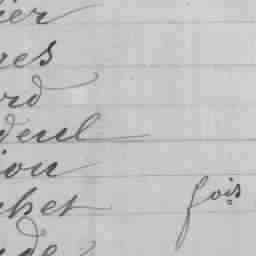 ier
res
rd
deul
ion
chet fois
de